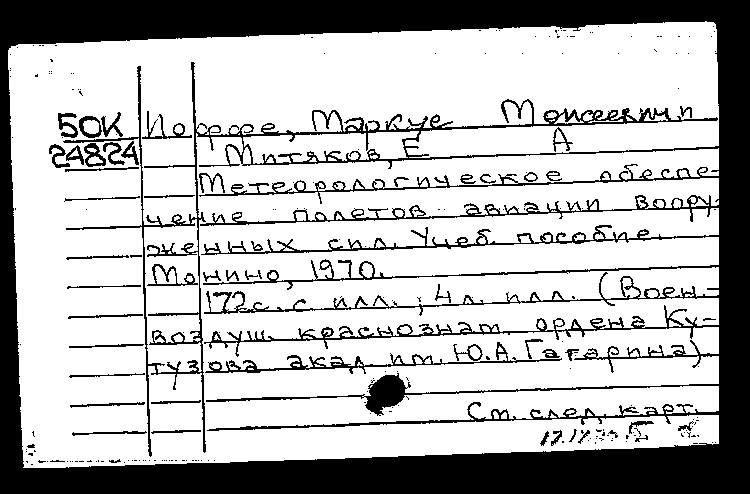 50К Иоффе, Маркус Моисеевич п
24824 Митяков, Е А
Метеорологическое обеспе-
чение полетов авиации воору-
женных сил. Учеб. пособие.
Монино, 1970.
172с. с илл.; 4л. илл. (Воен.-
воздуш. краснознам. ордена Ку-
тузова акад им. Ю.А. Гагарина)
См. след. карт.